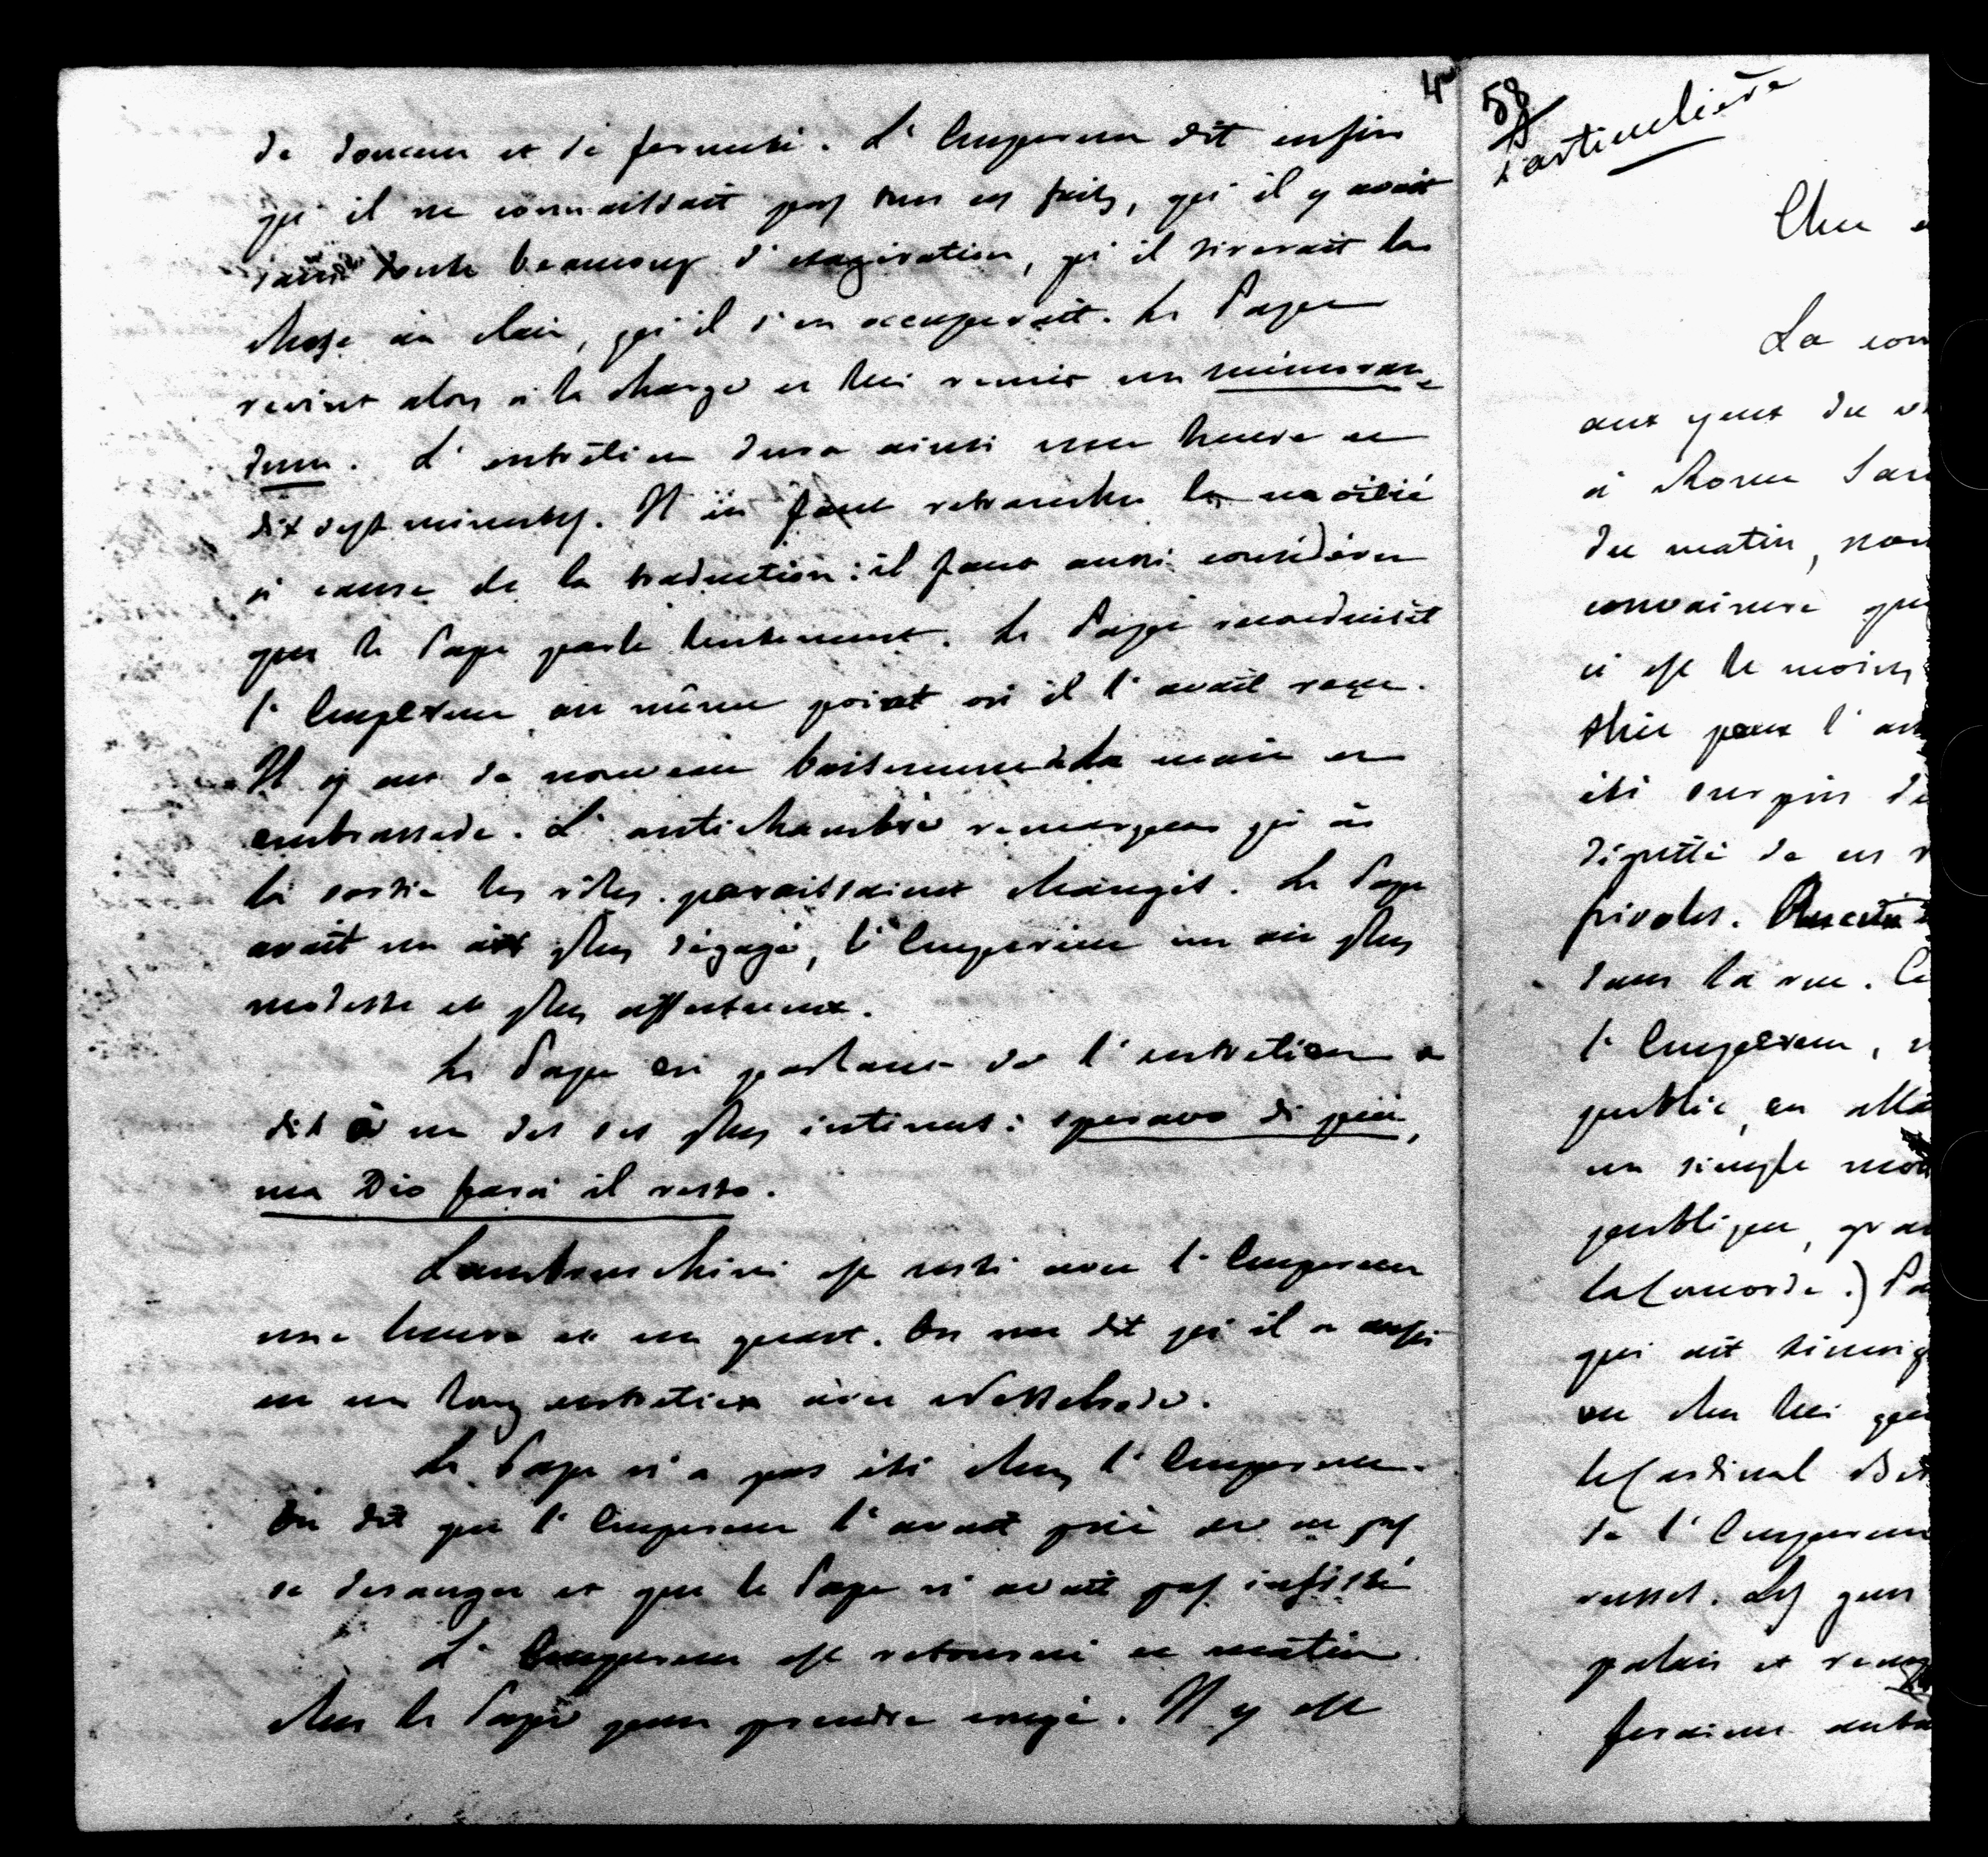 4
de douceur et de fermeté. L'Empereur dit enfin
qu'il ne connaissait pas tous ces faits, qu'il y avait
sans doute beaucoup d'exagération, qu'il tirerait la
chose au clair, qu'il s'en occuperait. Le Pape
revint alors à la charge et lui remit un mémoran-
dum. L'entretien dura ainsi une heure et
dix sept minutes. Il en faut retrancher la moitié
à cause de la traduction: il faut aussi considérer
que le Pape parle lentement. Le Pape reconduisit
l'Empereur au même point où il l'avait reçu.
Il y eut de nouveau baisement de la main et
embrassade. L'antichambre remarqua qu'à
la sortie les rôles paraissaient changés. Le Pape
avait un air plus dégagé, l'Empereur un air plus
modeste et plus affectueux.
Le Pape en parlant de l'entretien a
dit à un des ses plus intimes: speravo di più,
ma Dio farà il resto.
Lambruschini est resté avec l'Empereur
une heure et un quart. On me dit qu'il a aussi
eu un long entretien avec Nesselrode.
Le Pape n'a pas été chez l'Empereur.
On dit que l'Empereur l'avait prié de ne pas
se deranger et que le Pape n'avait pas insisté
L'Empereur est retourné ce matin
chez le Pape pour prendre congé. Il y est
58
Particulière
Cher
La
aux yeux du
à Rome
du matin,
convaincre
ci est le moins
pour l'
été surpris
de ces
frivoles.
dans la rue.
l'Empereur,
public, en
un simple
publique,
la Concorde.)
qui ait
ou chez lui
le Cardinal
de l'Empereur
russes. Les gens
palais et
feraient